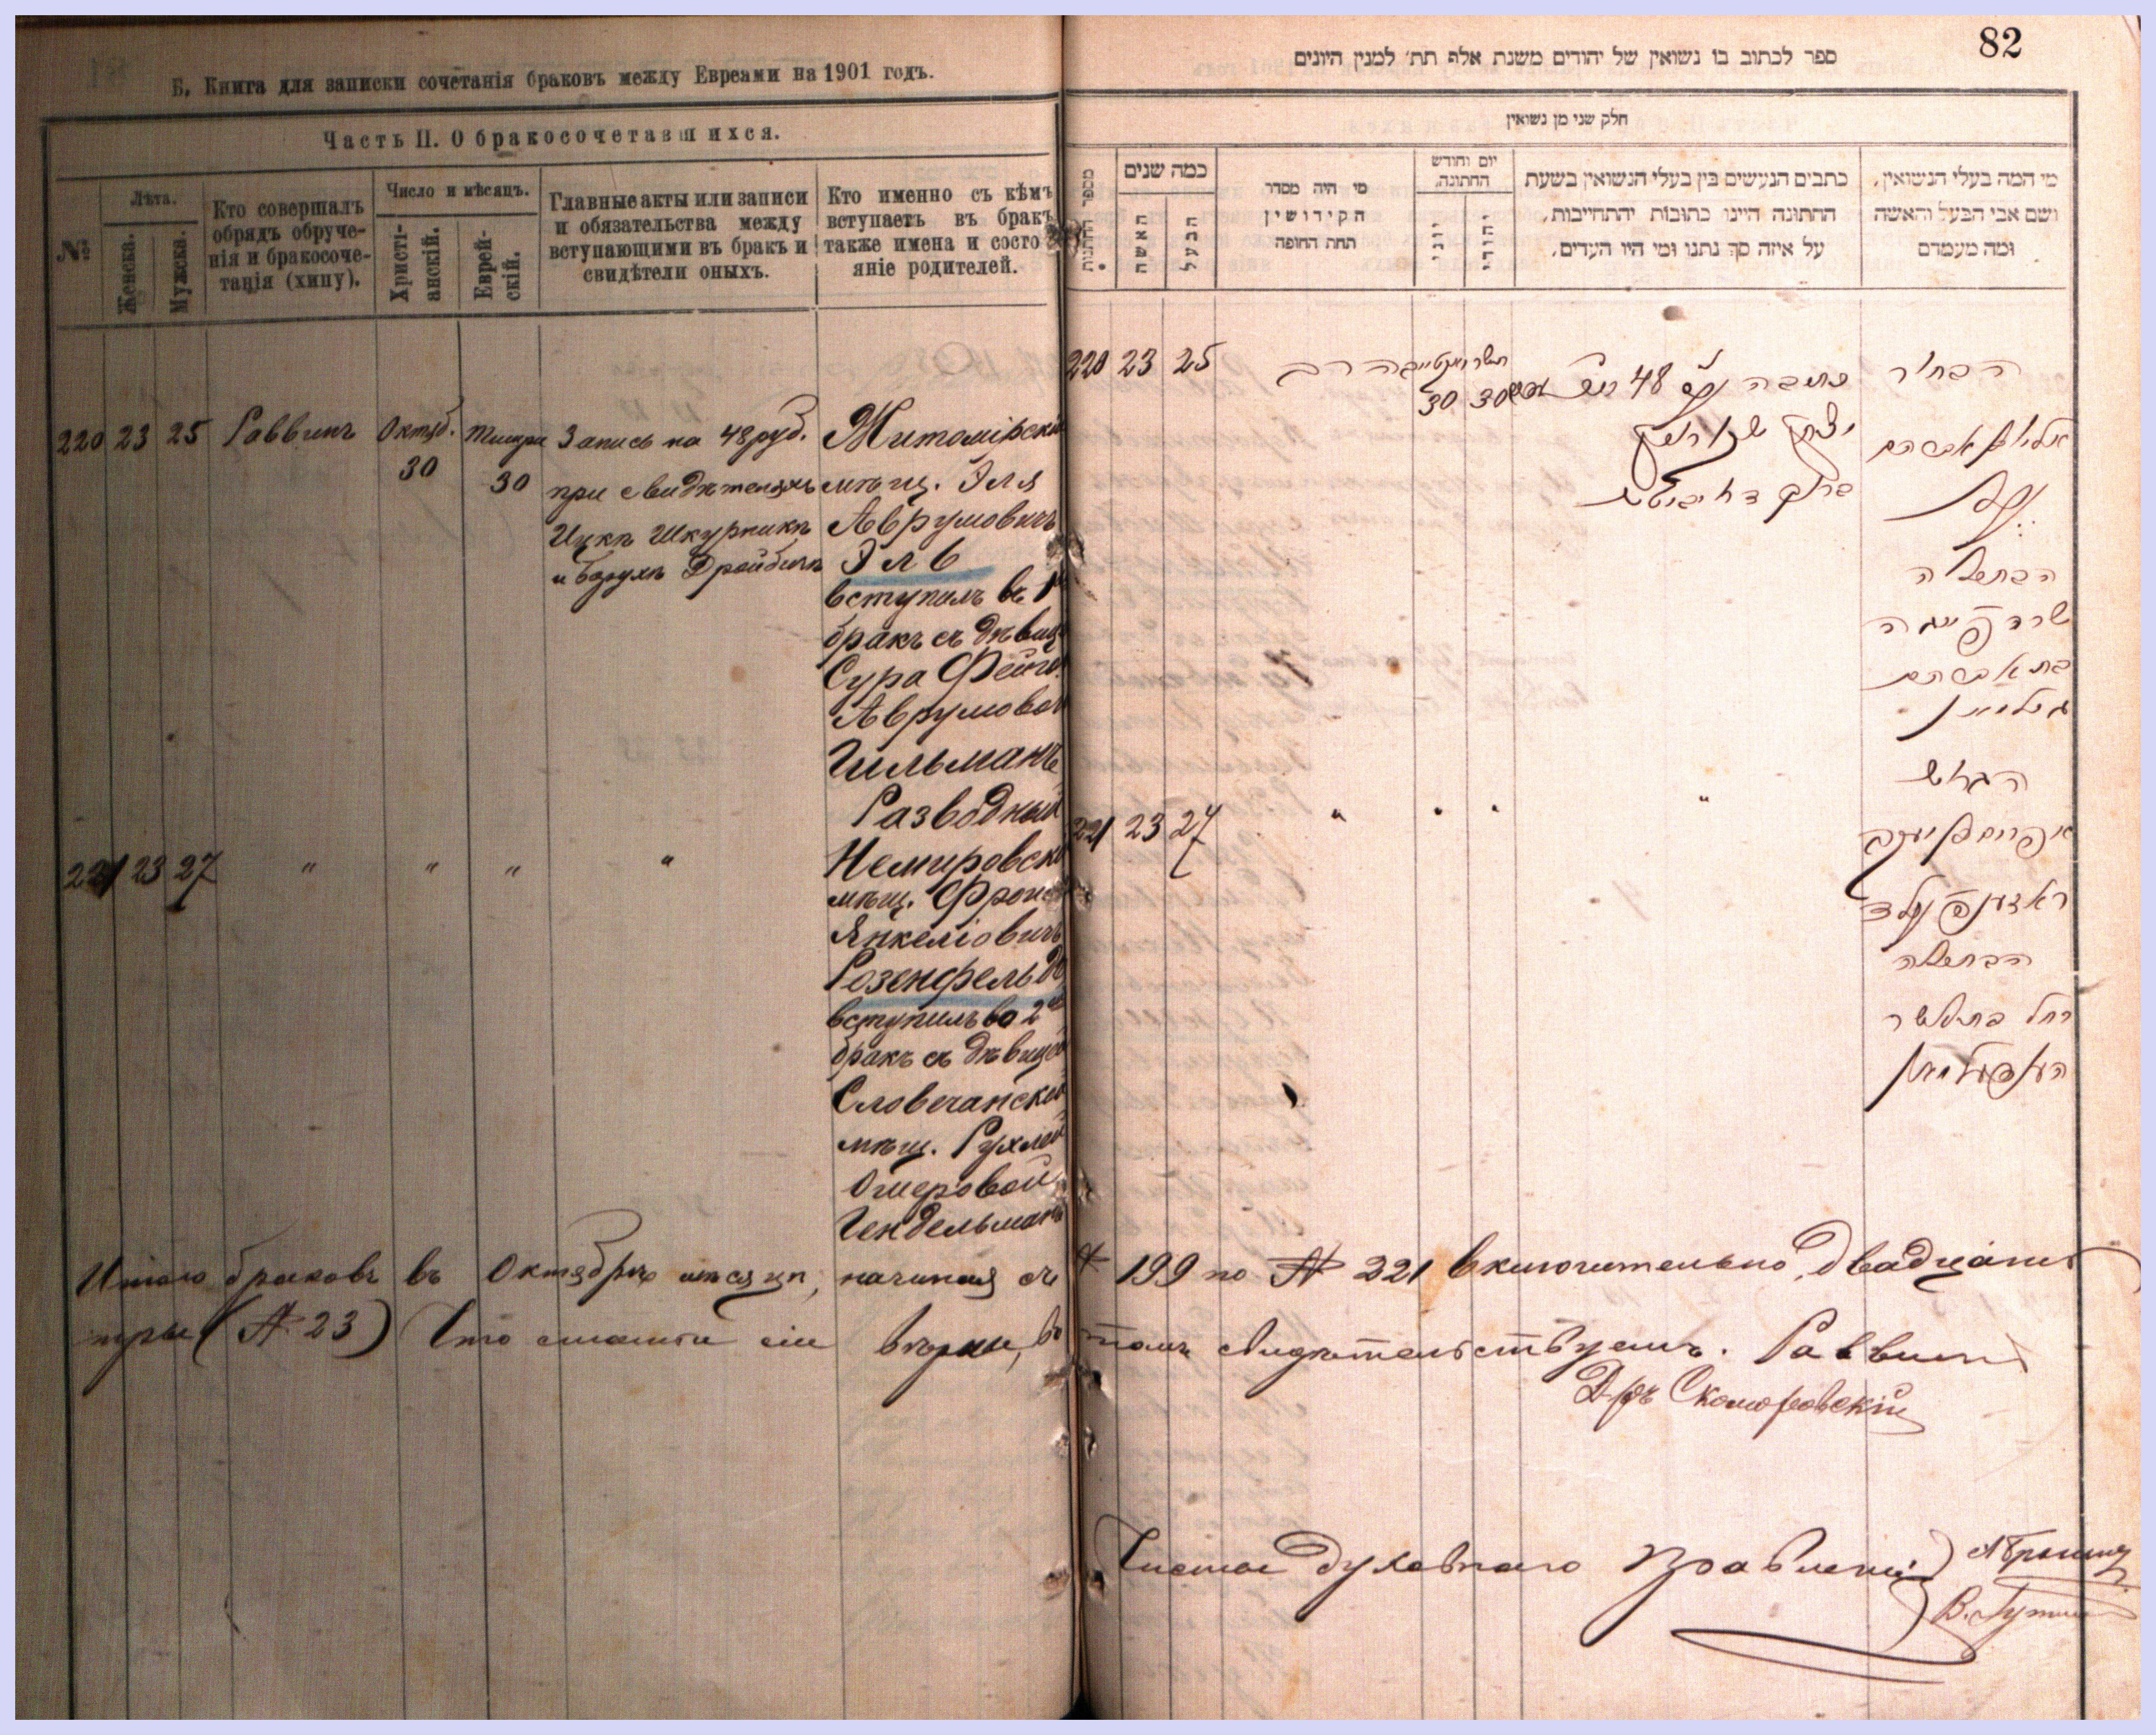 Б. Книга для записки сочетанія браковъ между Евреями на 1901 годъ.
Часть II. О бракосочетавшихся.
№
Лѣта.
Женска.
Мужска.
Кто совершалъ
обрядъ обруче-
нія и бракосоче-
танія (хипу).
Число и мѣсяцъ.
Христі-
анскій.
Еврей-
скій.
Главные акты или записи
и обязательства между
вступающими въ бракъ и
свидѣтели оныхъ.
Кто именно съ кѣмъ
вступаетъ въ бракъ
также имена и состо
яніе родителей.
220 23 25 Раввинъ Октяб. 30 Тишри 30
Запись на 48 руб.
при свидѣтеляхъ
Ицкъ Шкурникъ
и Борухъ Дройбичъ
Житомірскій
мѣщ. Эля
Аврумовичъ
Эль
вступилъ въ 1
бракъ съ дѣвиц
Сура Фейга
Аврумовой
Гильманъ
Разводный
221 23 27 " " " "
Немировскі
мѣщ. Фроим
Янкеліовичъ
Розенфельдъ
вступилъ во 2
бракъ съ дѣвицей
Словечанской
мѣщ. Рухлей
Ошеровой
Гендельманъ
82
ספר לכתוב בו נשואין של יהודים משנת אלף תת׳ למנין היונים
חלק שני מן נשואין
מספר החתונות
כמה שנים
האשה
הבעל
מי היה מסדר
הקידושין
תחת החופה
יום וחודש
החתונה.
יוני
יהודי
כתבים הנעשים בין בעלי הנשואין בשעת
החתונה היינו כתובות יהתחייבות,
על איזה סך נתנו ומי היו העדים.
מי המה בעלי הנשואין,
ושם אבי הבעל והאשה
ומה מעמדם
220 23 25 רב
30 30
כתובה 48
יצחק
ברוך
הבחור
אברהם
הבתולה
שרה פייגה
בת אברהם
גילמאן
הגרוש
221 23 27 " " " "
אפרים יעקב
ראזענפעלד
הבתולה
רחל בת אשר
הענדעלמאן
Итого браковъ въ Октябрѣ мѣсяцѣ, начиная съ № 199 по № 221 включительно, двадцать
три (№ 23) Что статьи сіи вѣрны, въ томъ свидѣтельствуемъ. Раввинъ
Д-ръ Скоморовскій
Члены духовнаго Правленія